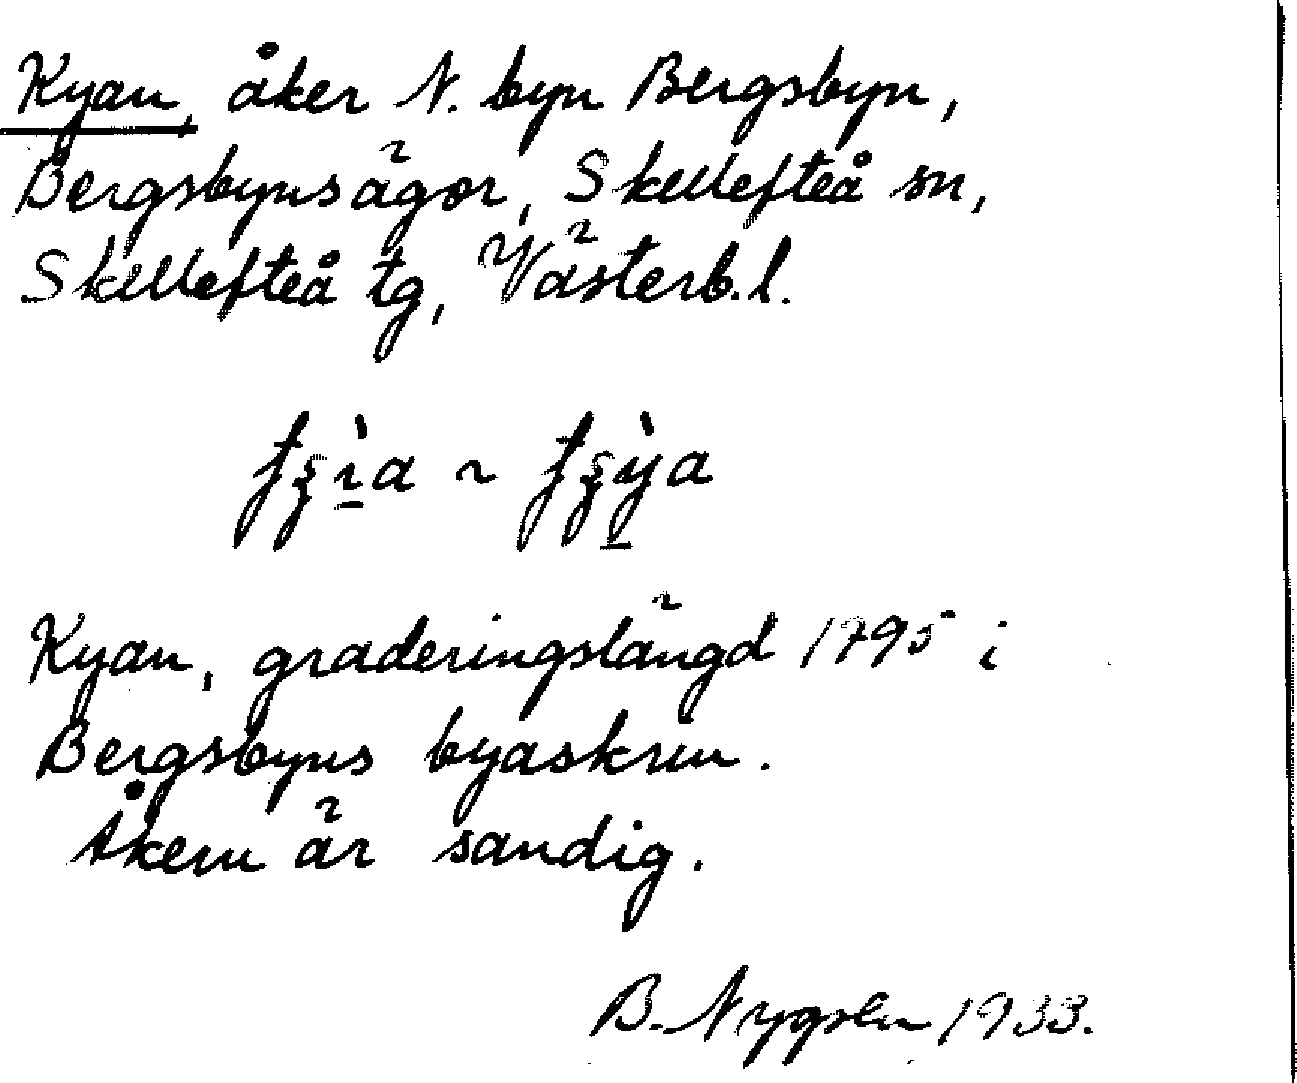 Kyan, åker N. byn Bergsbyn,
Bergsbynsägor, Skellefteå sn,
Skellefteå tg, Västerb.l.
Kyan, graderingslängd 1795 i
Bergsbyns byaskrin.
Åkern är sandig.
B. 1933.